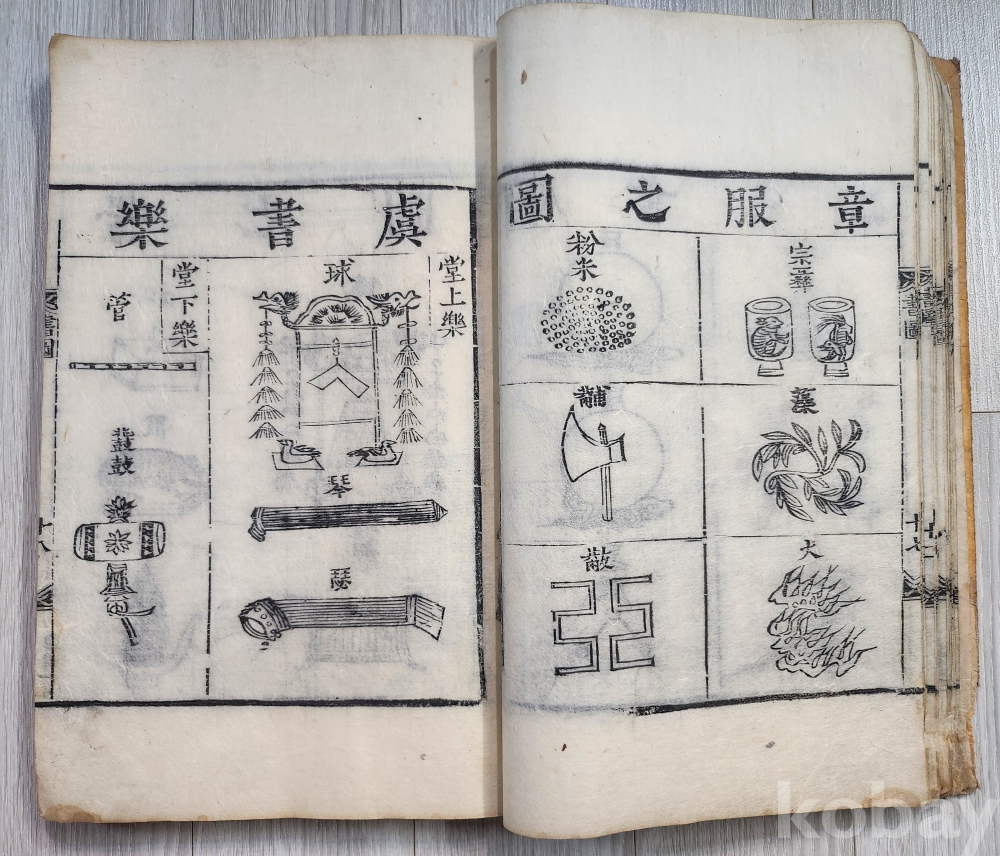 章服之圖
宗彝
藻
火
粉米
黼
黻
書圖
廿七
虞書樂
堂上樂
球
琴
瑟
堂下樂
管
鼗鼓
書圖
kobay